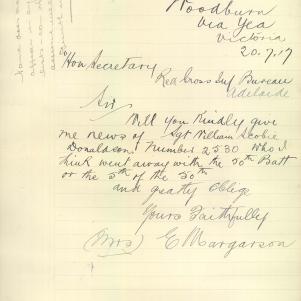 Woodburn
Via Yea
Victoria
20.7.17
Hon Secretary
Red Cross Inf Bureau
Adelaide
Sir
Will you Kindly give
me news of Sgt William Scobie
Donaldson Number 2530 Who I
think went away with the 50th Batt
or the 5th of the 50th
and greatly oblige
Yours Faithfully
(Mrs) E Margarson